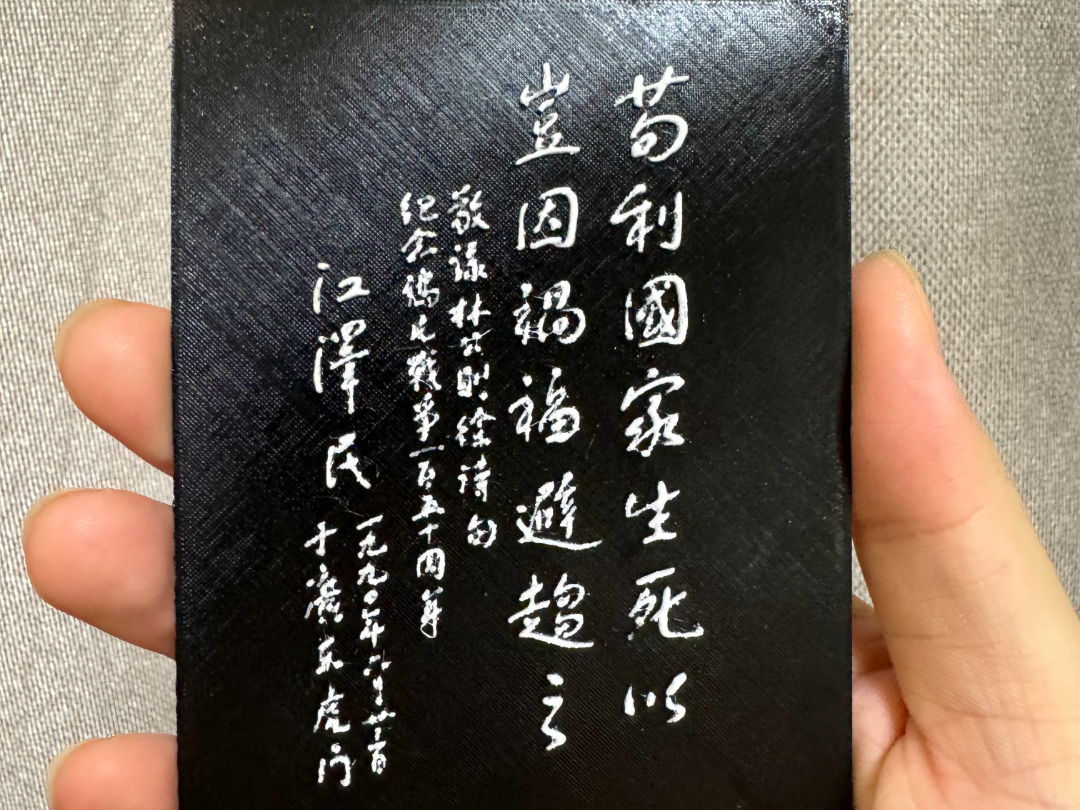 苟利國家生死以
豈因禍福避趨之
敬录林公則徐詩句
纪念鴉片戰爭一百五十周年
江澤民
一九九〇年六月廿一日
于廣东虎门